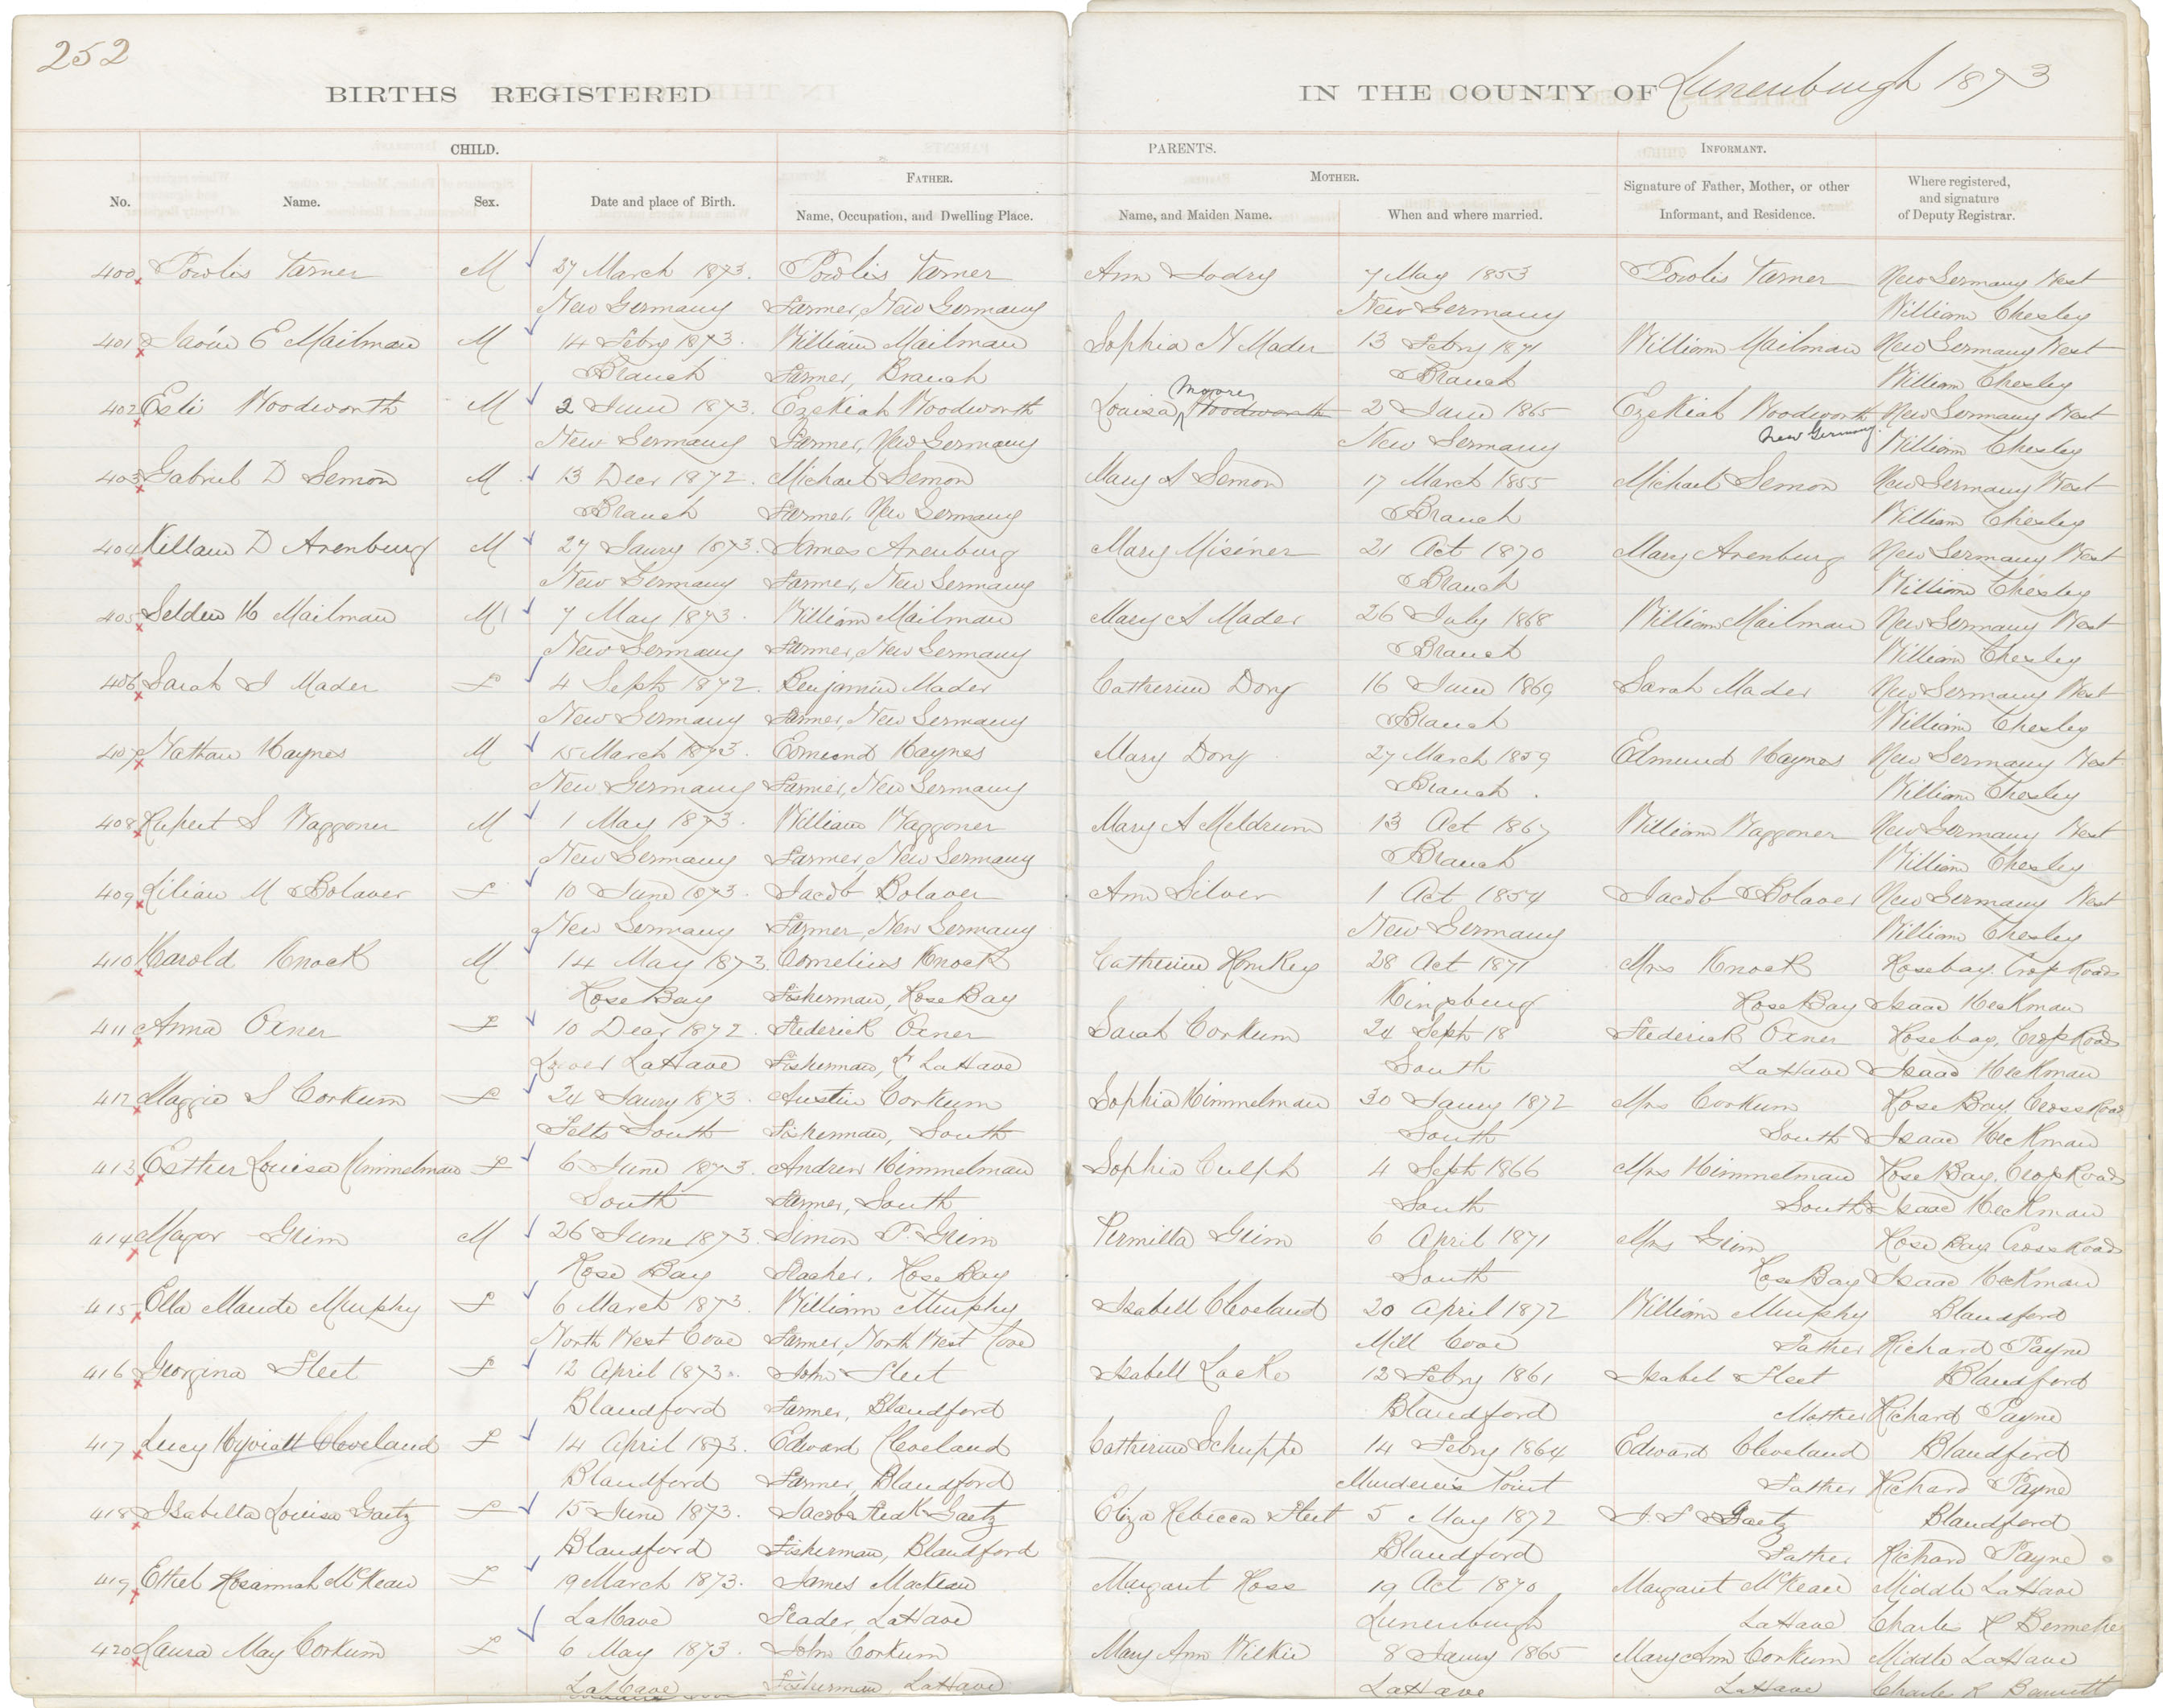 252
BIRTHS REGISTERED IN THE COUNTY OF Lunenburgh 1873
CHILD. PARENTS. INFORMANT.
No. Name. Sex. Date and place of Birth. FATHER. Name, Occupation, and Dwelling Place. MOTHER. Name, and Maiden Name. When and where married. Signature of Father, Mother, or other Informant, and Residence. Where registered, and signature of Deputy Registrar.
400 Powlis Tarner M 27 March 1873. Powlis Tarner Ann 7 May 1853 Powlis Tarner New Germany West
New Germany Farmer, New Germany New Germany William Chesley
401 E Mailman M 14 Febry 1873. William Mailman Sophia N Mader 13 Febry 1871 William Mailman New Germany West
Branch Farmer, Branch Branch William Chesley
402 Esli Woodworth M 2 June 1873. Ezekiah Woodworth Louisa Moore Woodworth 2 June 1865 Ezekiah Woodworth New Germany West
New Germany Farmer, New Germany New Germany New Germany. William Chesley
403 Gabriel D Semon M 13 Decr 1872. Michael Semon Mary A Semon 17 March 1855 Michael Semon New Germany West
Branch Farmer, New Germany Branch William Chesley
404 Killam D Arenburg M 27 Janry 1873. James Arenburg Mary Misener 21 Oct 1870 Mary Arenburg New Germany West
New Germany Farmer, New Germany Branch William Chesley
405 Selden H Mailman M 7 May 1873. William Mailman Mary A Mader 26 July 1868 William Mailman New Germany West
New Germany Farmer, New Germany Branch William Chesley
406 Sarah J Mader F 4 Sept 1872. Benjamin Mader Catherine Dory 16 June 1869 Sarah Mader New Germany West
New Germany Farmer, New Germany Branch William Chesley
407 Nathan Haynes M 15 March 1873. Edmund Haynes Mary Dory 27 March 1859 Edmund Haynes New Germany West
New Germany Farmer, New Germany Branch. William Chesley
408 Rupert S Waggoner M 1 May 1873. William Waggoner Mary A Meldrum 13 Oct 1867 William Waggoner New Germany West
New Germany Farmer, New Germany Branch William Chesley
409 Lilian M Bolaver F 10 June 1873. Jacob Bolaver Ann Silver 1 Oct 1854 Jacob Bolaver New Germany West
New Germany Farmer, New Germany New Germany William Chesley
410 Harold Knock M 14 May 1873. Cornelius Knock Catherine Romkey 28 Oct 1871 Mrs Knock Rosebay. Crofs Roads
Rose Bay Fisherman, Rose Bay Kingsburg Rose Bay Isaac Heckman
411 Anna Oxner F 10 Decr 1872. Frederick Oxner Sarah Corkum 24 Sept 18 Frederick Oxner Rosebay, Crofs Roads
Lower LaHave Fisherman, Lr LaHave South LaHave Isaac Heckman
412 Maggie S Corkum F 24 Janry 1873. Austin Corkum Sophia Himmelman 30 Janry 1872 Mrs Corkum Rose Bay. Cross Road
Felts South Fisherman, South South South Isaac Heckman
413 Esther Louisa Himmelman F 6 June 1873. Andrew Himmelman Sophia Culph 4 Sept 1866 Mrs Himmelman Rose Bay. Crofs Roads
South Farmer, South South South Isaac Heckman
414 Major Grim M 26 June 1873. Simon P. Grim Permilla Grim 6 April 1871 Mrs Grim Rose Bay Cross Roads
Rose Bay Rose Bay South Rose Bay Isaac Heckman
415 Ella Maude Murphy F 6 March 1873. William Murphy Isabell Cleveland 20 April 1872 William Murphy Blandford
North West Cove Farmer, North West Cove Mill Cove Father Richard Payne
416 Georgina Fleet F 12 April 1873. John Fleet Isabell Locke 12 Febry 1861 Isabel Fleet Blandford
Blandford Farmer, Blandford Blandford Mother Richard Payne
417 Lucy Cleveland F 14 April 1873. Edward Cleveland Catherine Schuppe 14 Febry 1864 Edward Cleveland Blandford
Blandford Farmer, Blandford Point Father Richard Payne
418 Isabella Louisa Gaetz F 15 June 1873. Jacob Fredk Gaetz Eliza Rebecca Fleet 5 May 1872 J. F Gaetz Blandford
Blandford Fisherman, Blandford Blandford Father Richard Payne
419 Ethel Rosannah McKean F 19 March 1873. James MacKean Margaret Ross 19 Oct 1870 Margaret McKean Middle LaHave
LaHave LaHave Lunenburgh LaHave Charles R
420 Laura May Corkum F 6 May 1873. John Corkum Mary Ann Wilkie 8 Janry 1865 Mary Ann Corkum Middle LaHave
LaHave Fisherman, LaHave LaHave LaHave Charles R